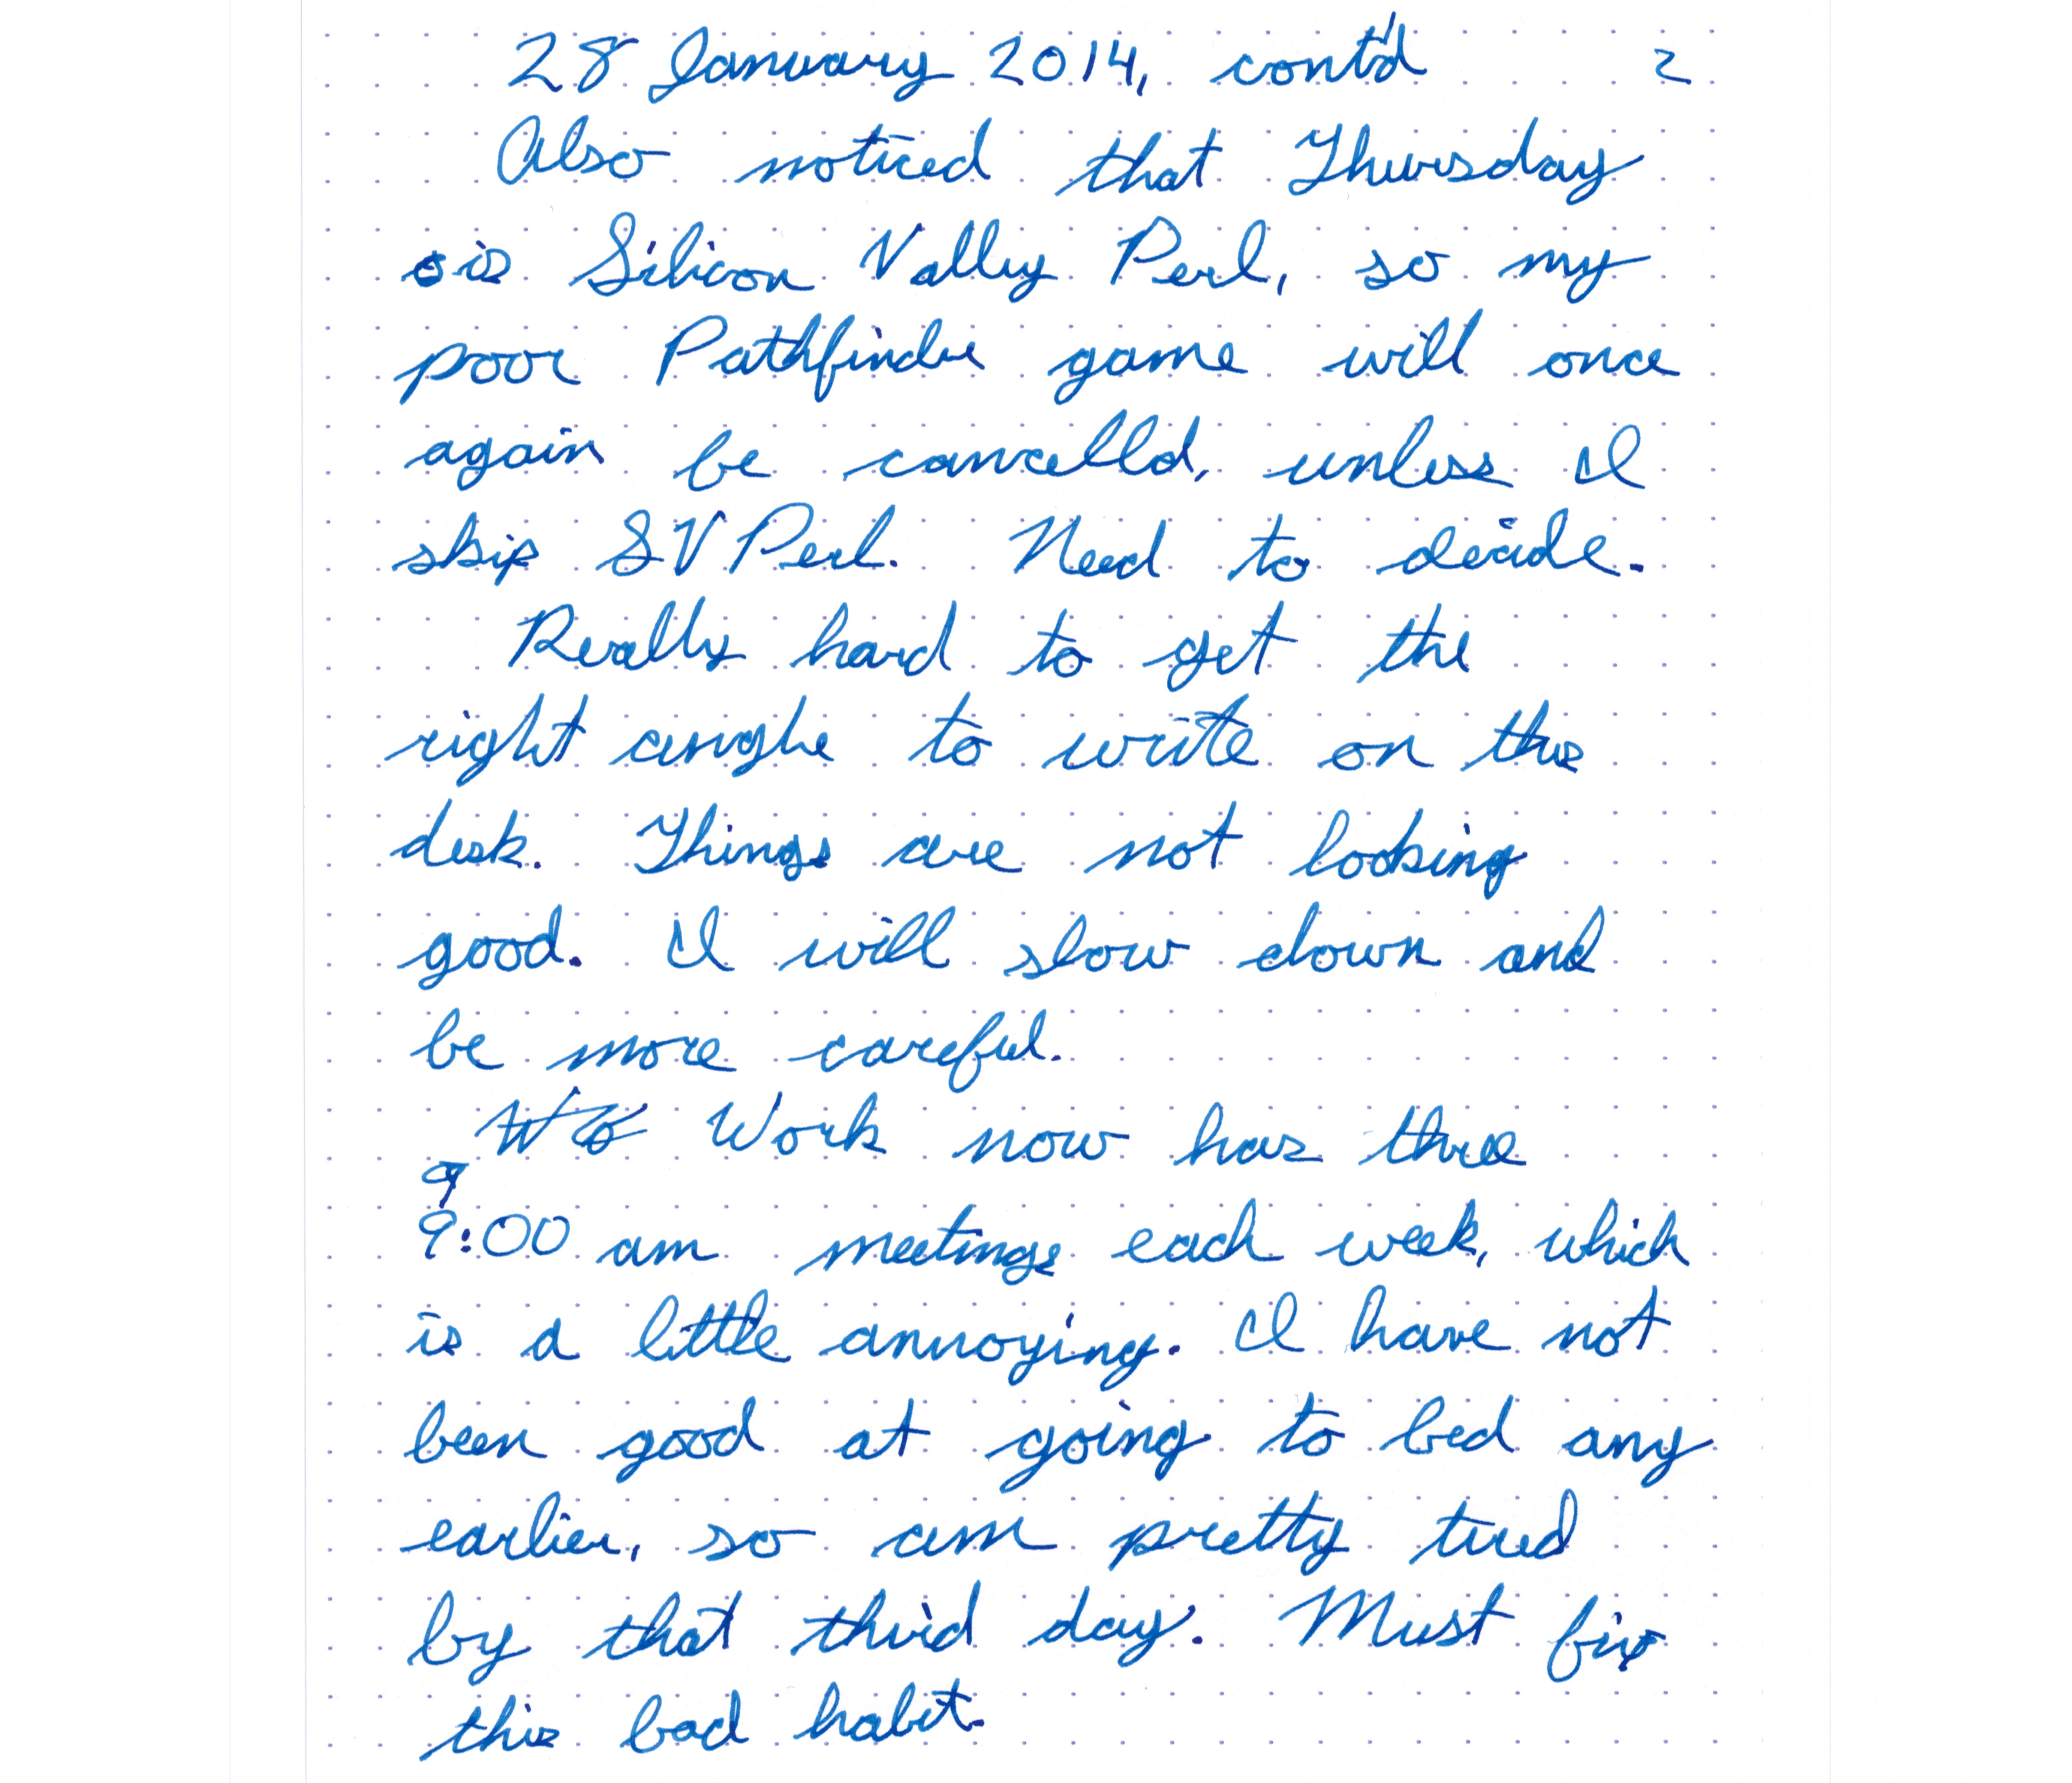 28 January 2014, cont'd 2
Also noticed that Thursday
is Silicon Valley Perl, so my
poor Pathfinder game will once
again be cancelled, unless I
skip SV Perl. Need to decide.
Really hard to get the
right angle to write on this
desk. Things are not looking
good. I will slow down and
be more careful.
Work now has three
9
9:00 am meetings each week, which
is a little annoying. I have not
been good at going to bed any
earlier, so am pretty tired
by that third day. Must fix
this bad habit.